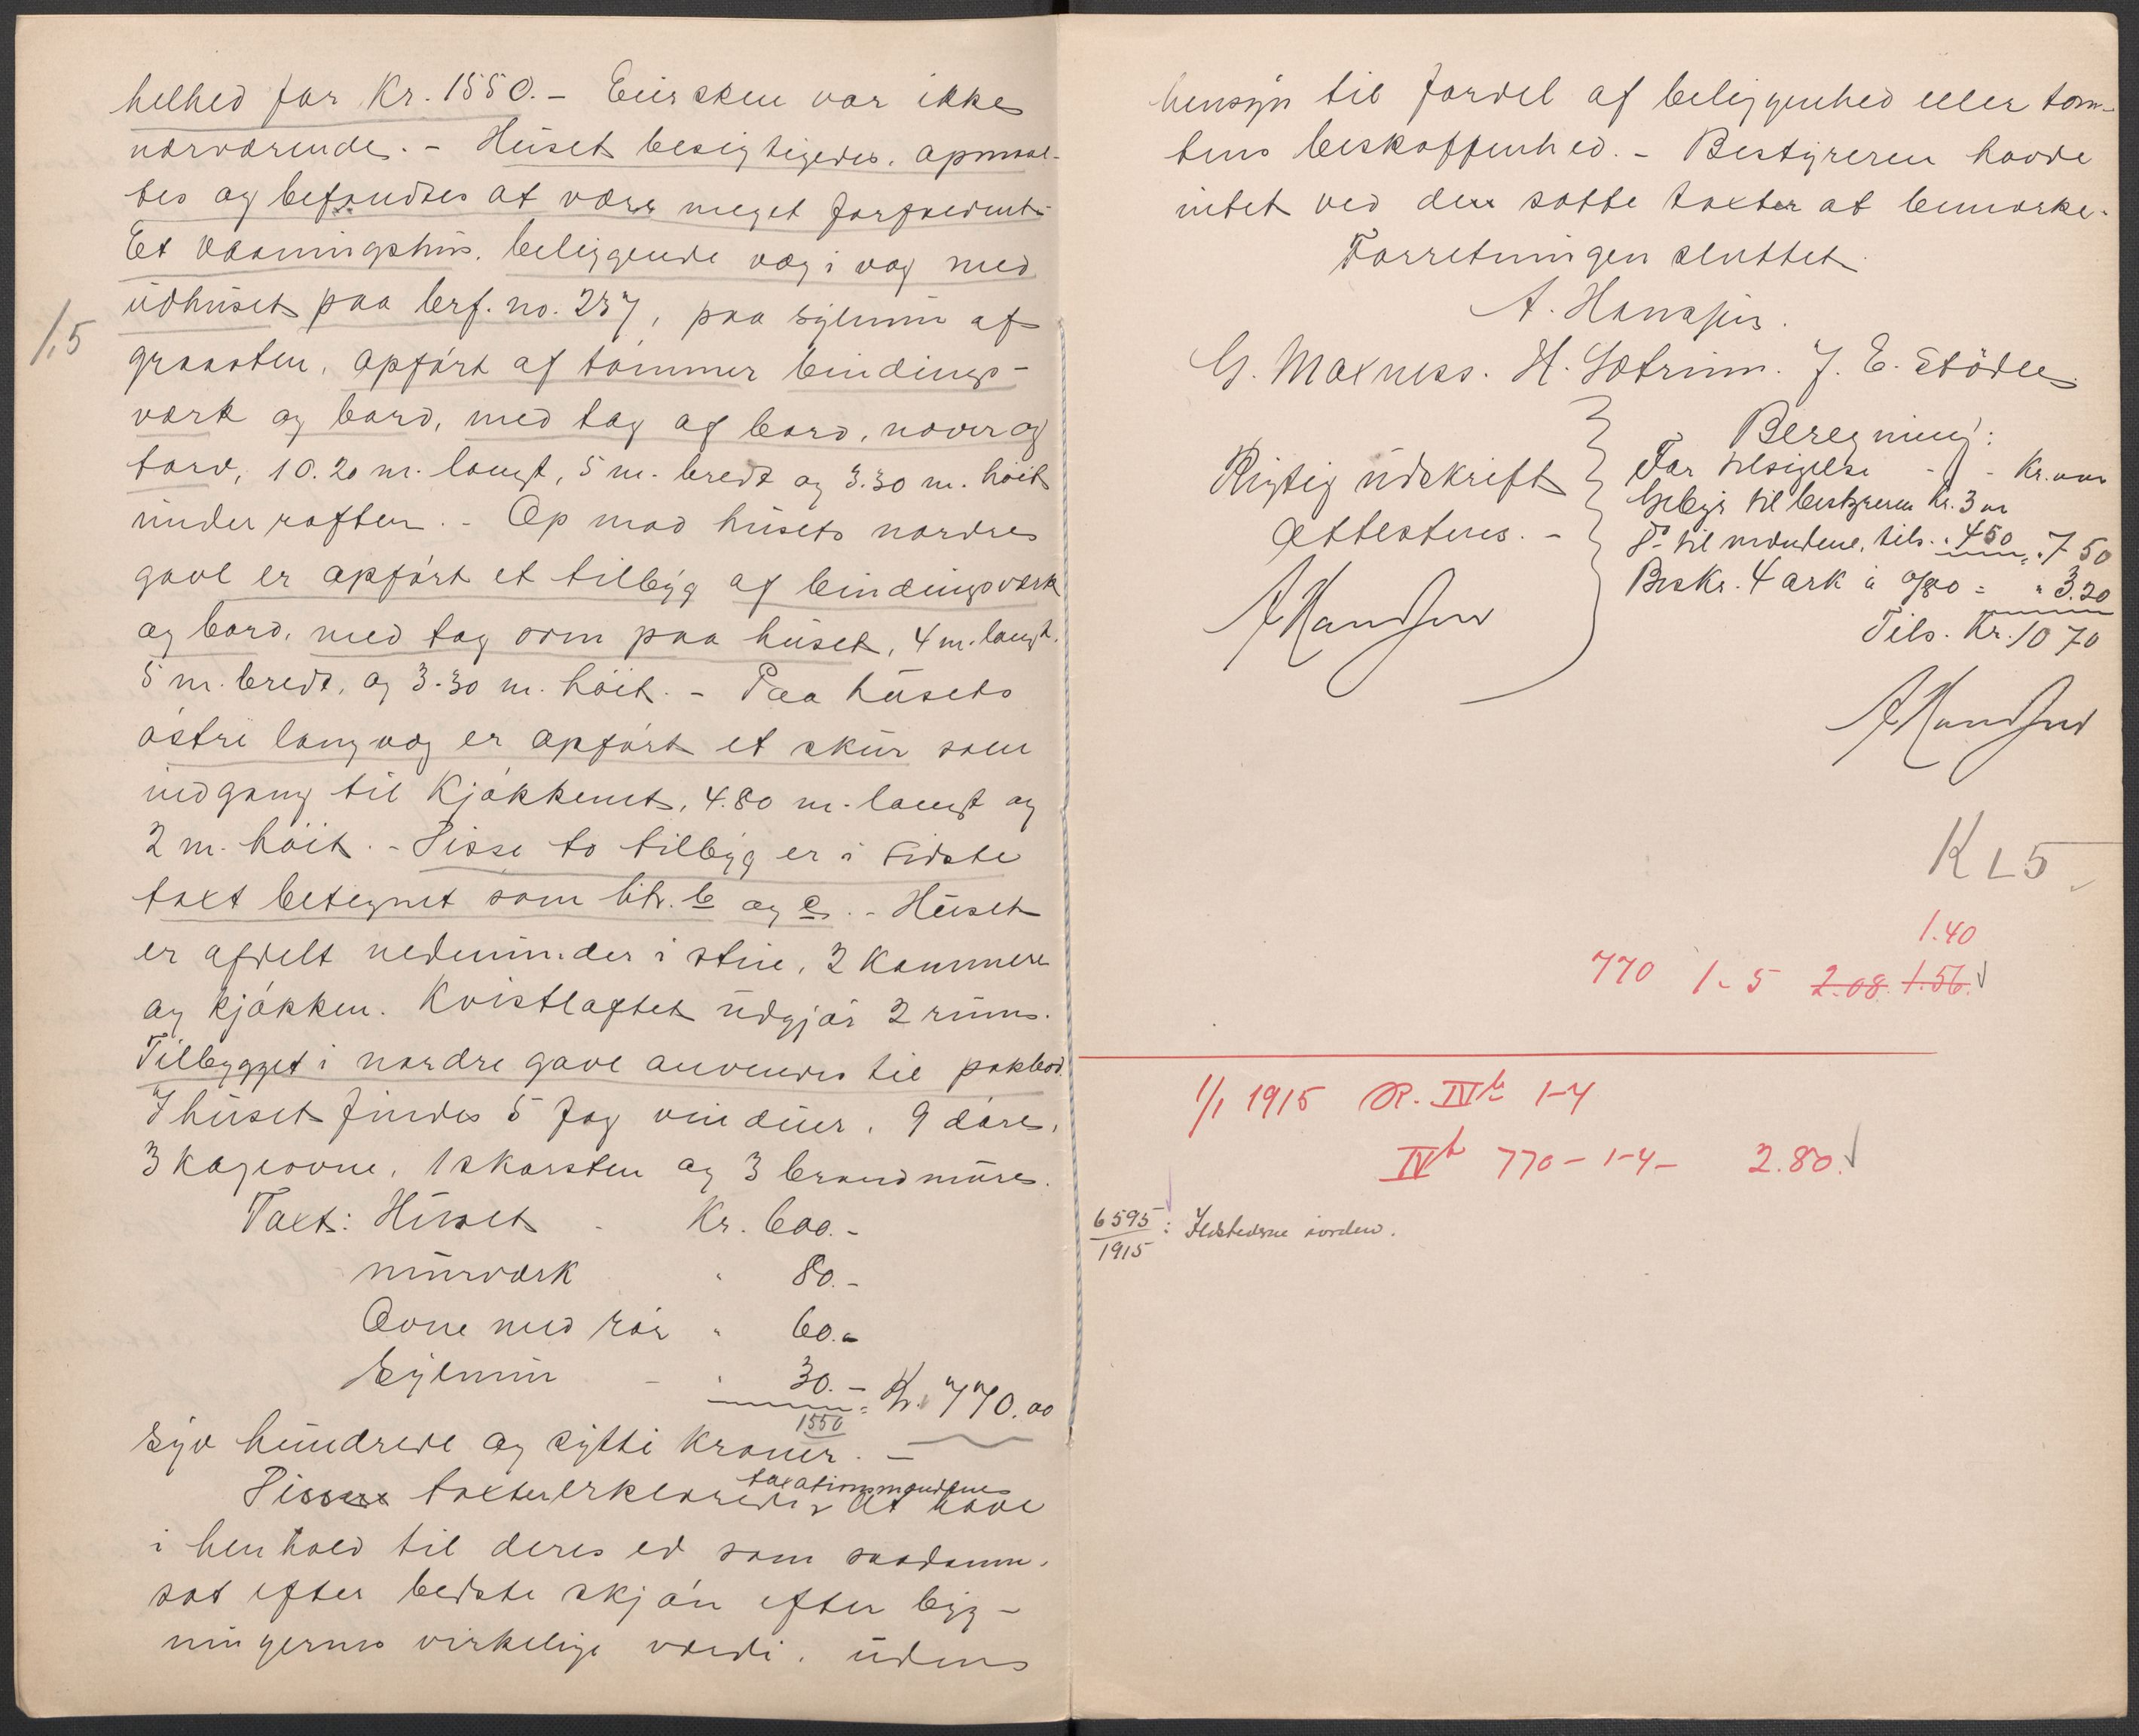 helhed for Kr. 1550.- Eiersken var ikke
nærværende. - Huset besigtigedes, opmaal-
tes og befandtes at være meget forfaldent.
Et vaaningshus, beliggende væg i væg med
udhuset paa brf. no. 237, paa sylmur af
1/5
graasten, opført af tømmer bindings-
værk og bord, med tag af bord, næver og
torv, 10.20 m. langt, 5 m. bredt og 3.30 m. høit
under raften. - Op mod husets nordre
gavl er opført et tilbyg af bindingsværk
og bord, med tag som paa huset, 4 m. langt,
5 m. bredt, og 3.30 m. høit. - Paa husets
østre langvæg er opført et skur som
indgang til kjøkkenet, 4.80 m. langt og
2 m. høit. - Disse to tilbyg er i sidste
taxt betegnet som litr. b og c. - Huset
er afdelt nedenunder i stue, 2 kammere
og kjøkken. Kvistloftet udgjør 2 rum.
Tilbygget i nordre gavl anvendes til pakbod.
I huset findes 5 fag vinduer, 9 døre,
3 kageovne, 1 skorsten og 3 brandmure.
Taxt: Huset - Kr. 600.-
murværk " 80.-
Ovne med rør " 60.-
Sylmur - " 30.- = Kr. 770.00
1550
syv hundrede og sytti kroner. -
taxationsmændene
Disse taxter erklærede at have
i henhold til deres ed som saadanne,
sat efter bedste skjøn efter byg-
ningernes virkelige værdi, uden
hensyn til fordel af beliggenhed eller tom-
tens beskaffenhed. - Bestyreren havde
intet ved den satte taxter at bemærke.
Forretningen sluttet.
A. Hansen.
G. Maxness. H. Sotrinn. J. E. Stödle
Rigtig udskrift
attesteres. -
AHansen
Beregning:
For tilsigelse - - Kr.
Gebyr til bestyreren Kr. 3
Do til mændene, tils. " 4 50 = " 7 50
Beskr. 4 ark à 0/80 = " 3.20
Tils. Kr. 10 70
AHansen
K L 5
1.40
770 1-5 2.08 1.56.
1/1 1915 R. IVb 1-4
IVb 770 - 1-4 - 2.80.
6595/1915 : Ildstederne iorden.